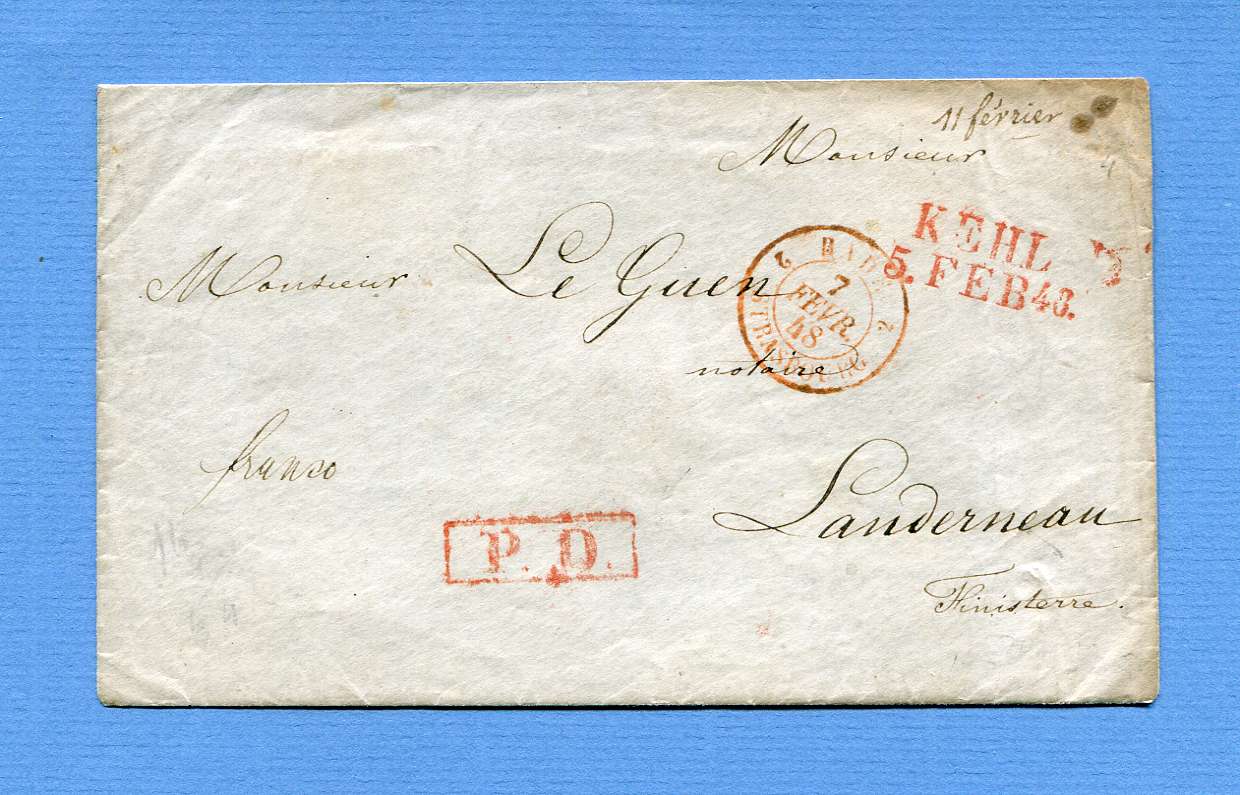 11 février
Monsieur
KEHL
5. FEB 48.
Monsieur Le Guen
2 BADE 2
7
FEVR.
48
STRASBOURG
notaire
franco
Landerneau
P. D.
Finisterre.